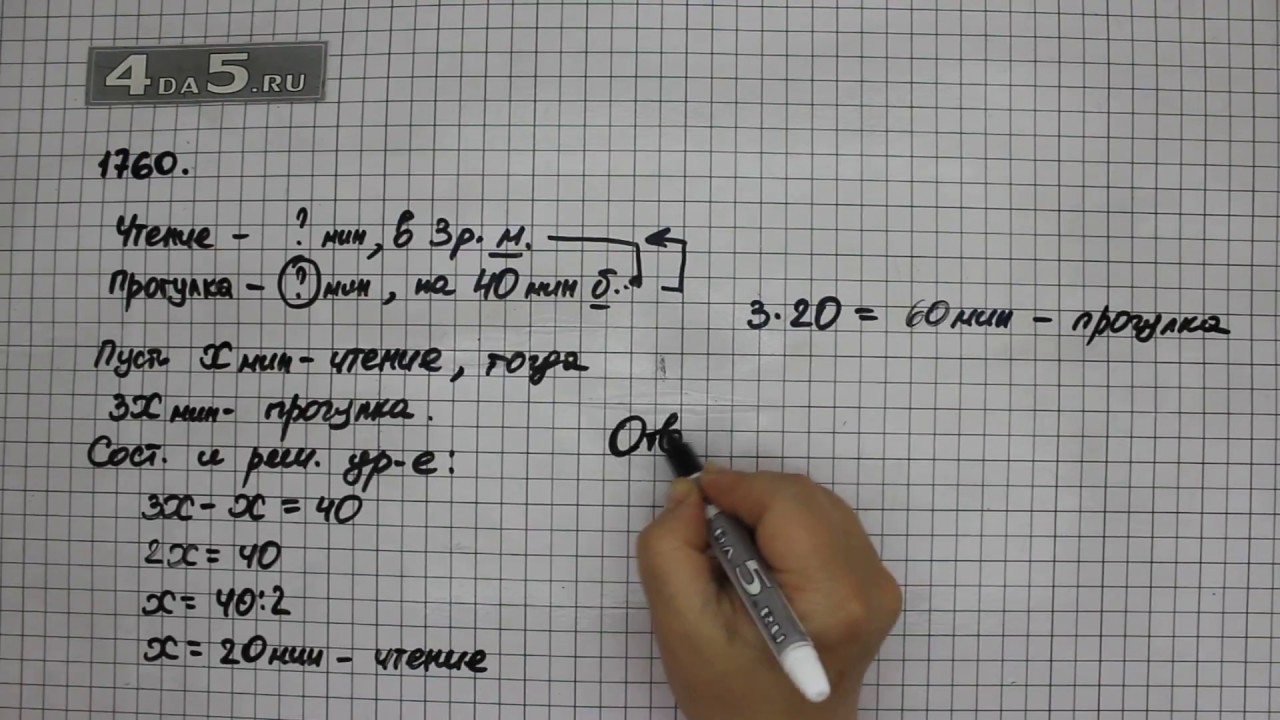 4DA5.RU
1760.
Чтение - ? мин, в 3 р. м.
Прогулка - ? мин, на 40 мин б.
Пусть x мин - чтение, тогда
3x мин - прогулка.
Сост. и реш. ур-е:
3x - x = 40
2x = 40
x = 40:2
x = 20 мин - чтение
3·20 = 60 мин - прогулка
Отв
DA 5.RU